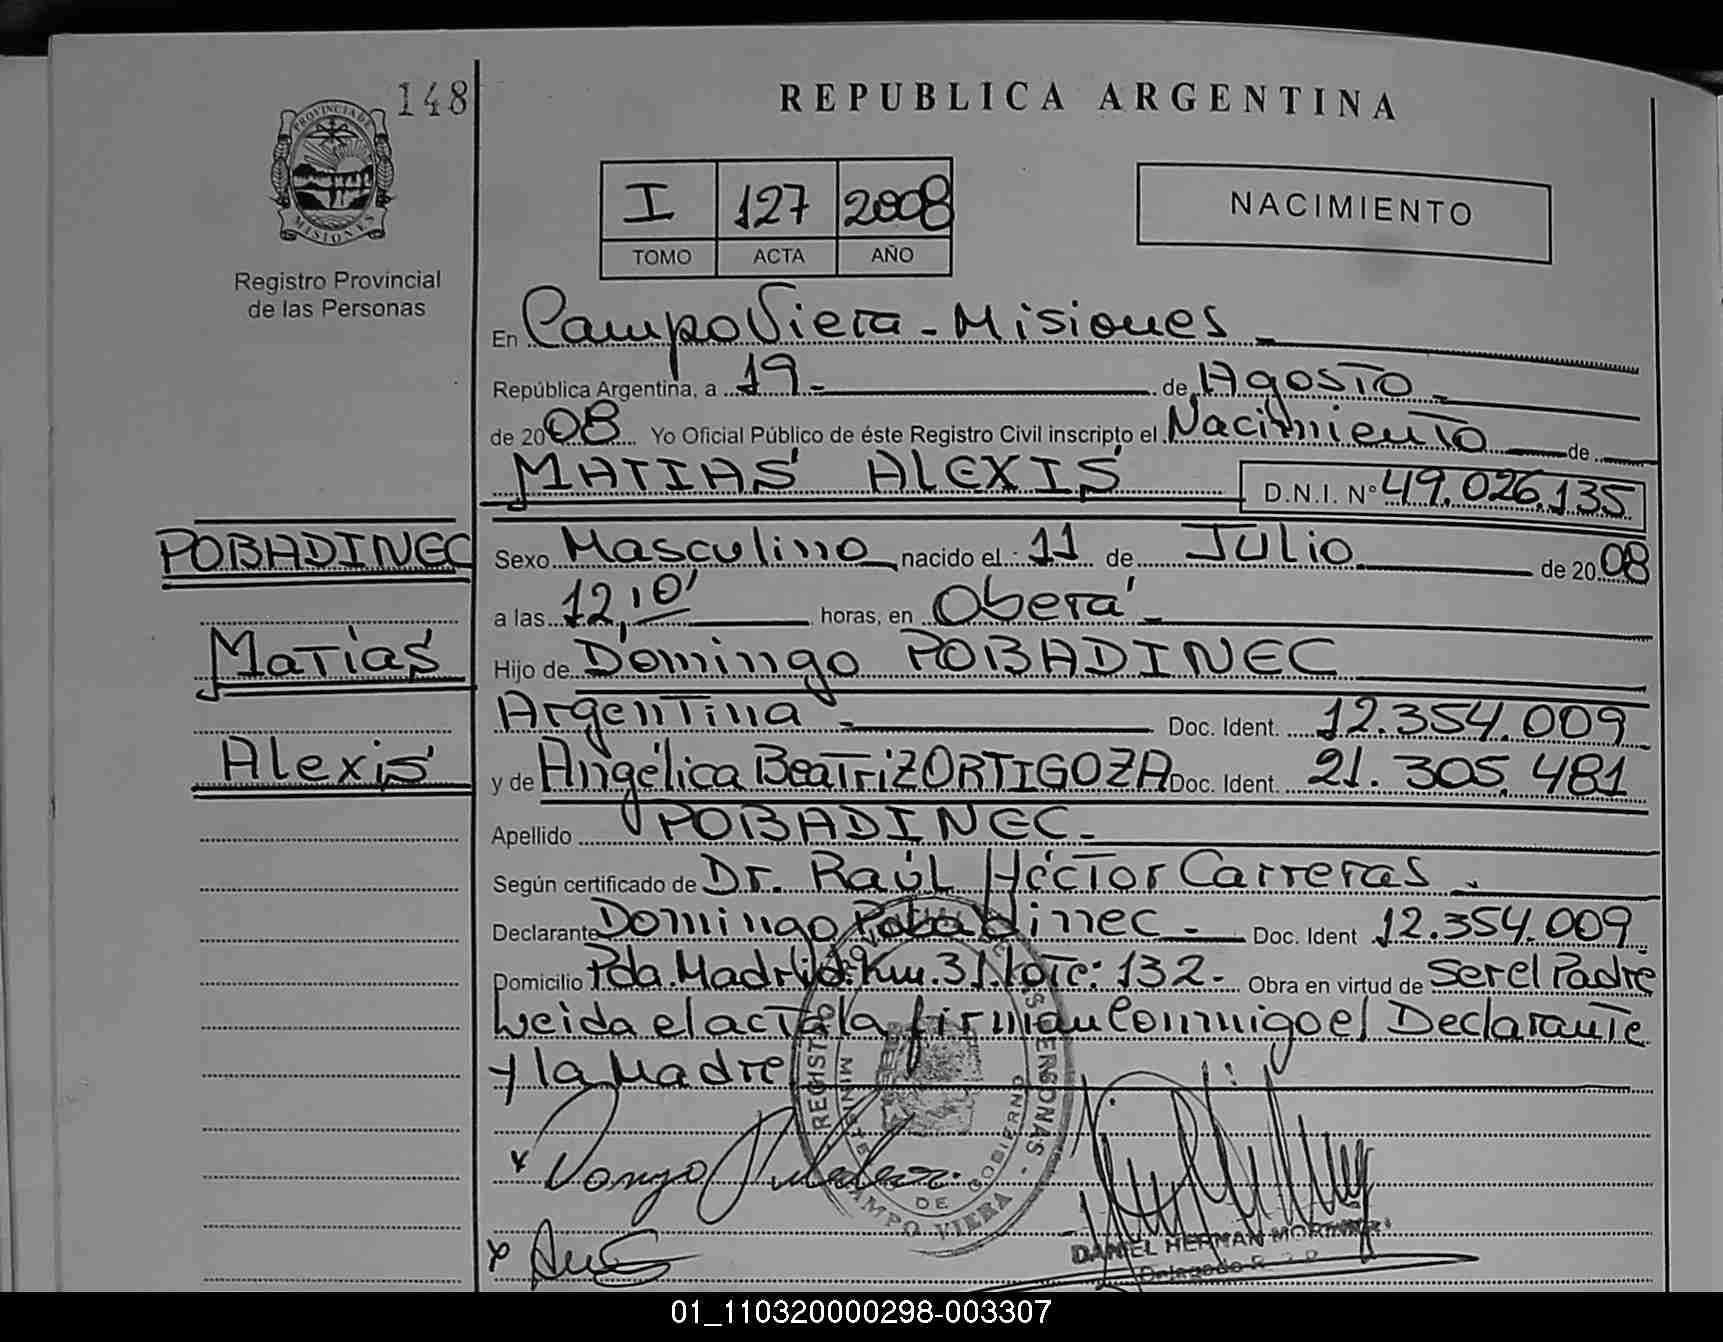 148
PROVINCIA DE
MISIONES
Registro Provincial
de las Personas
REPUBLICA ARGENTINA
I 127 2008
TOMO ACTA AÑO
NACIMIENTO
En Campo Viera - Misiones
República Argentina, a 19- de Agosto
de 2008 Yo Oficial Público de éste Registro Civil inscripto el Nacimiento de
MATIAS ALEXIS D.N.I. Nº 49.026.135
POBADINEC
Matias
Alexis
Sexo Masculino nacido el: 11 de Julio de 2008
a las 12,10' horas, en Oberá
Hijo de Domingo POBADINEC
Argentina - Doc. Ident. 12.354.009
y de Angélica Beatriz ORTIGOZA Doc. Ident. 21.305.481
Apellido POBADINEC-
Según certificado de Dr. Raúl Héctor Carreras
Declarante Domingo Pobadinec - Doc. Ident 12.354.009
Domicilio Pda. Madrid: Km. 31. lote: 132- Obra en virtud de Ser el Padre
Leida el acta la firman Conmigo el Declarante
y la Madre
REGISTRO PERSONAS
MINISTE DE GOBIERNO
CAMPO VIERA
DANIEL HERNAN
Delegado
01_110320000298-003307